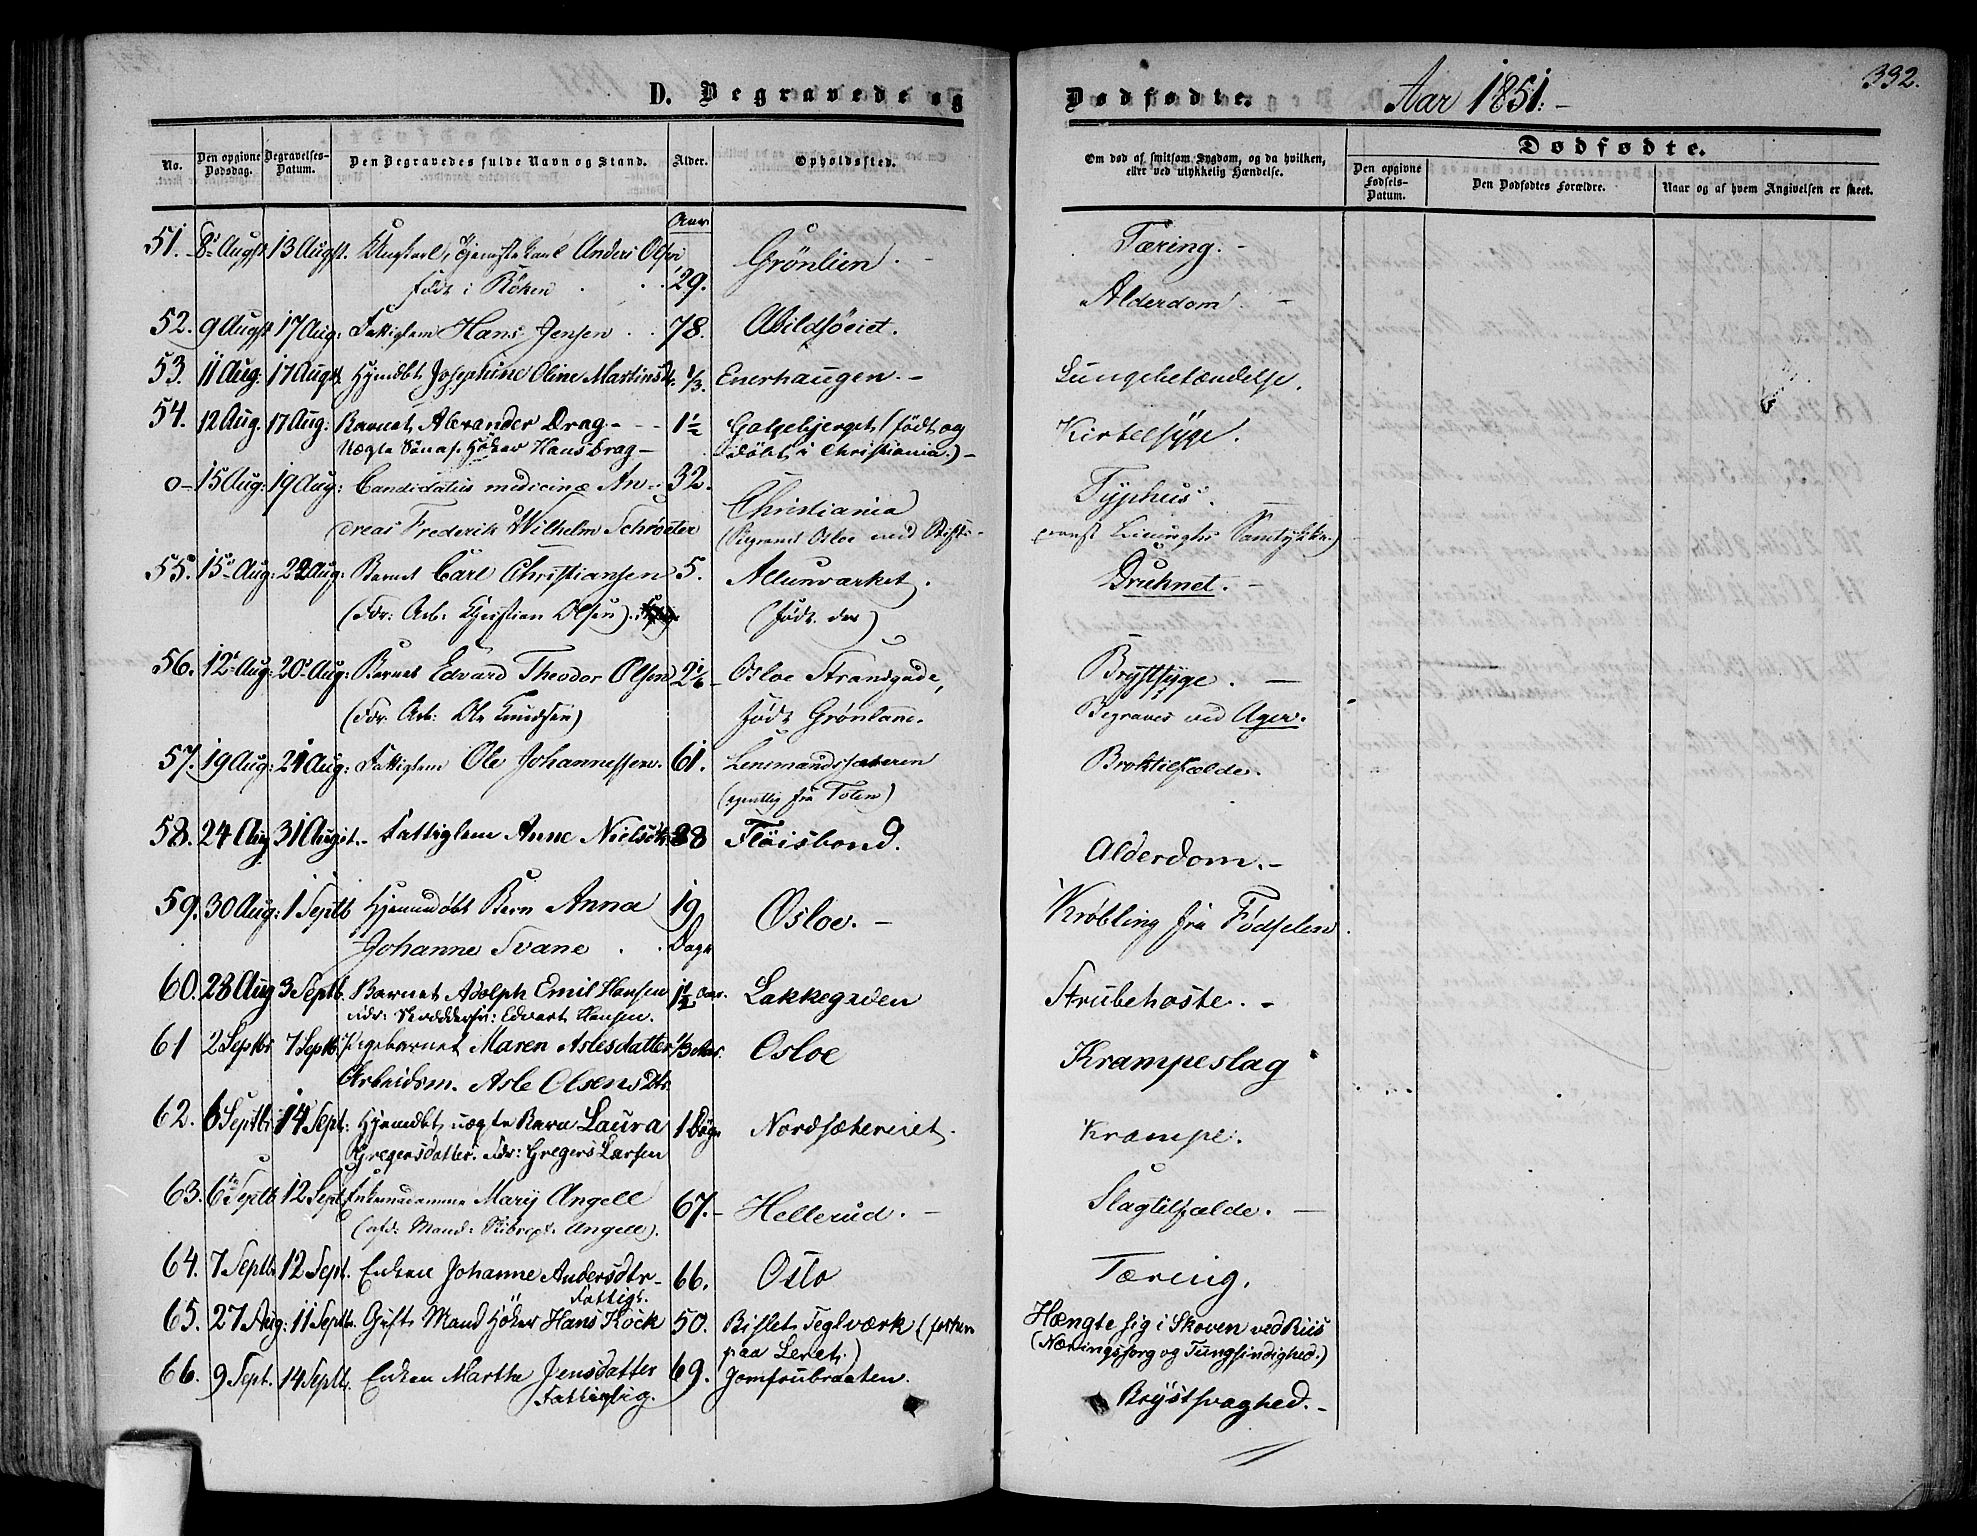 D. Begravede og
Dødfødte. Aar 1851.-
332.
No. Den opgivne Dødsdag. Begravelses-Datum. Den Begravedes fulde Navn og Stand. Alder. Opholdssted.
Om død af smitsom Sygdom, og da hvilken, eller ved ulykkelig Hændelse. Dødfødte.
Den opgivne Fødsels-Datum. Den Dødfødtes Forældre. Naar og af hvem Angivelsen er skeet.
Aar
51. 8 Augst 13 Augst. Ungkarl, Tjenestekarl Anders Olsen Grönlien. - Tæring. -
født i Röken 29.
52. 9 Augst 17 Aug: Fattiglem Hans Jensen 78. Abildsöeiet. Alderdom. -
53. 11 Aug: 17 Augst Hjemdbt. Josephine Oline Martinsdtr. 1/3. Enerhaugen. - Lungebetændelse.
54. 12 Aug. 17 Aug: Barnet Alexander Drag - 1 1/2 Galgebjerget (født og Kirtelsyge.
Uægte Søn af Höker Hans Drag - döbt i Christiania.) -
o- 15 Aug: 19 Aug: Candidatus medicinæ An- 32. Christiania Typhus.
dreas Frederik Wilhelm Schrøeter (Begravet Osloe med Stifts-
provst Samtykke.)
55. 15 Aug: 22 Aug: Barnet Carl Christiansen 5. Allunværket. Druknet. -
(Fdr: Arb: Christian Olsen). (født der)
56. 12 Aug: 20 Aug: Barnet Edvard Theodor Olsen 2 1/6 Osloe Strandgade, Brystsyge. -
(Fdr. Arb: Ole Knudsen) født Grønland. Begraves ved Ager.
57. 19 Aug: 21 Aug: Fattiglem Ole Johannessen. 61. Lensmandssæteren Broktilfælde.
(egentlig fra Toten)
58. 24 Aug 31 Augst. - Fattiglem Anne Nielsdtr 88 Flöisbond. Alderdom. -
59. 30 Aug: 1 Septb Hjemmedöbt Barn Anna 19 Osloe. - Krøbling fra Fødselen.
Johanne Svane Dage
60. 28 Aug 3 Septb. Barnet Adolph Emil Hansen 1 1/2 Aar. Lakkegaden Strubehoste. -
Fdr: Skræddersv: Edvart Hansen.
61 2 Septbr 7 Septbr Pigebarnet Maren Aslesdatter 1/3 Aar. Osloe Krampeslag
Arbeidsm. Asle Olsens Dtr.
62. 6 Septbr 14 Sept: Hjemdbt, uægte Barn Laura 1 Døgn Nordsætereiet. Krampe.
Gregersdatter. Fdr: Gregers Larsen
63. 6te Septb 12 Septb Enkemadamme Mary Angell 67. - Hellerud. - Slagtilfælde. -
(afd: Mand: Skibscpt: Angell).
64. 7 Septb. 12 Sept. Enken Johanne Andersdtr - 66. Oslo Tæring.
Fattigl.
65. 27 Aug: 11 Septb. Gift Mand Höker Hans Kock 50. Bislet Teglværk (forhen Hængte sig i Skoven ved Riis
paa Leret.) (Næringssorg og Tungsindighed.)
66. 9 Sept. 14 Septb. Enken Marthe Jensdatter 69. Jomfrubraaten. Brystsvaghed. -
Fattiglig.